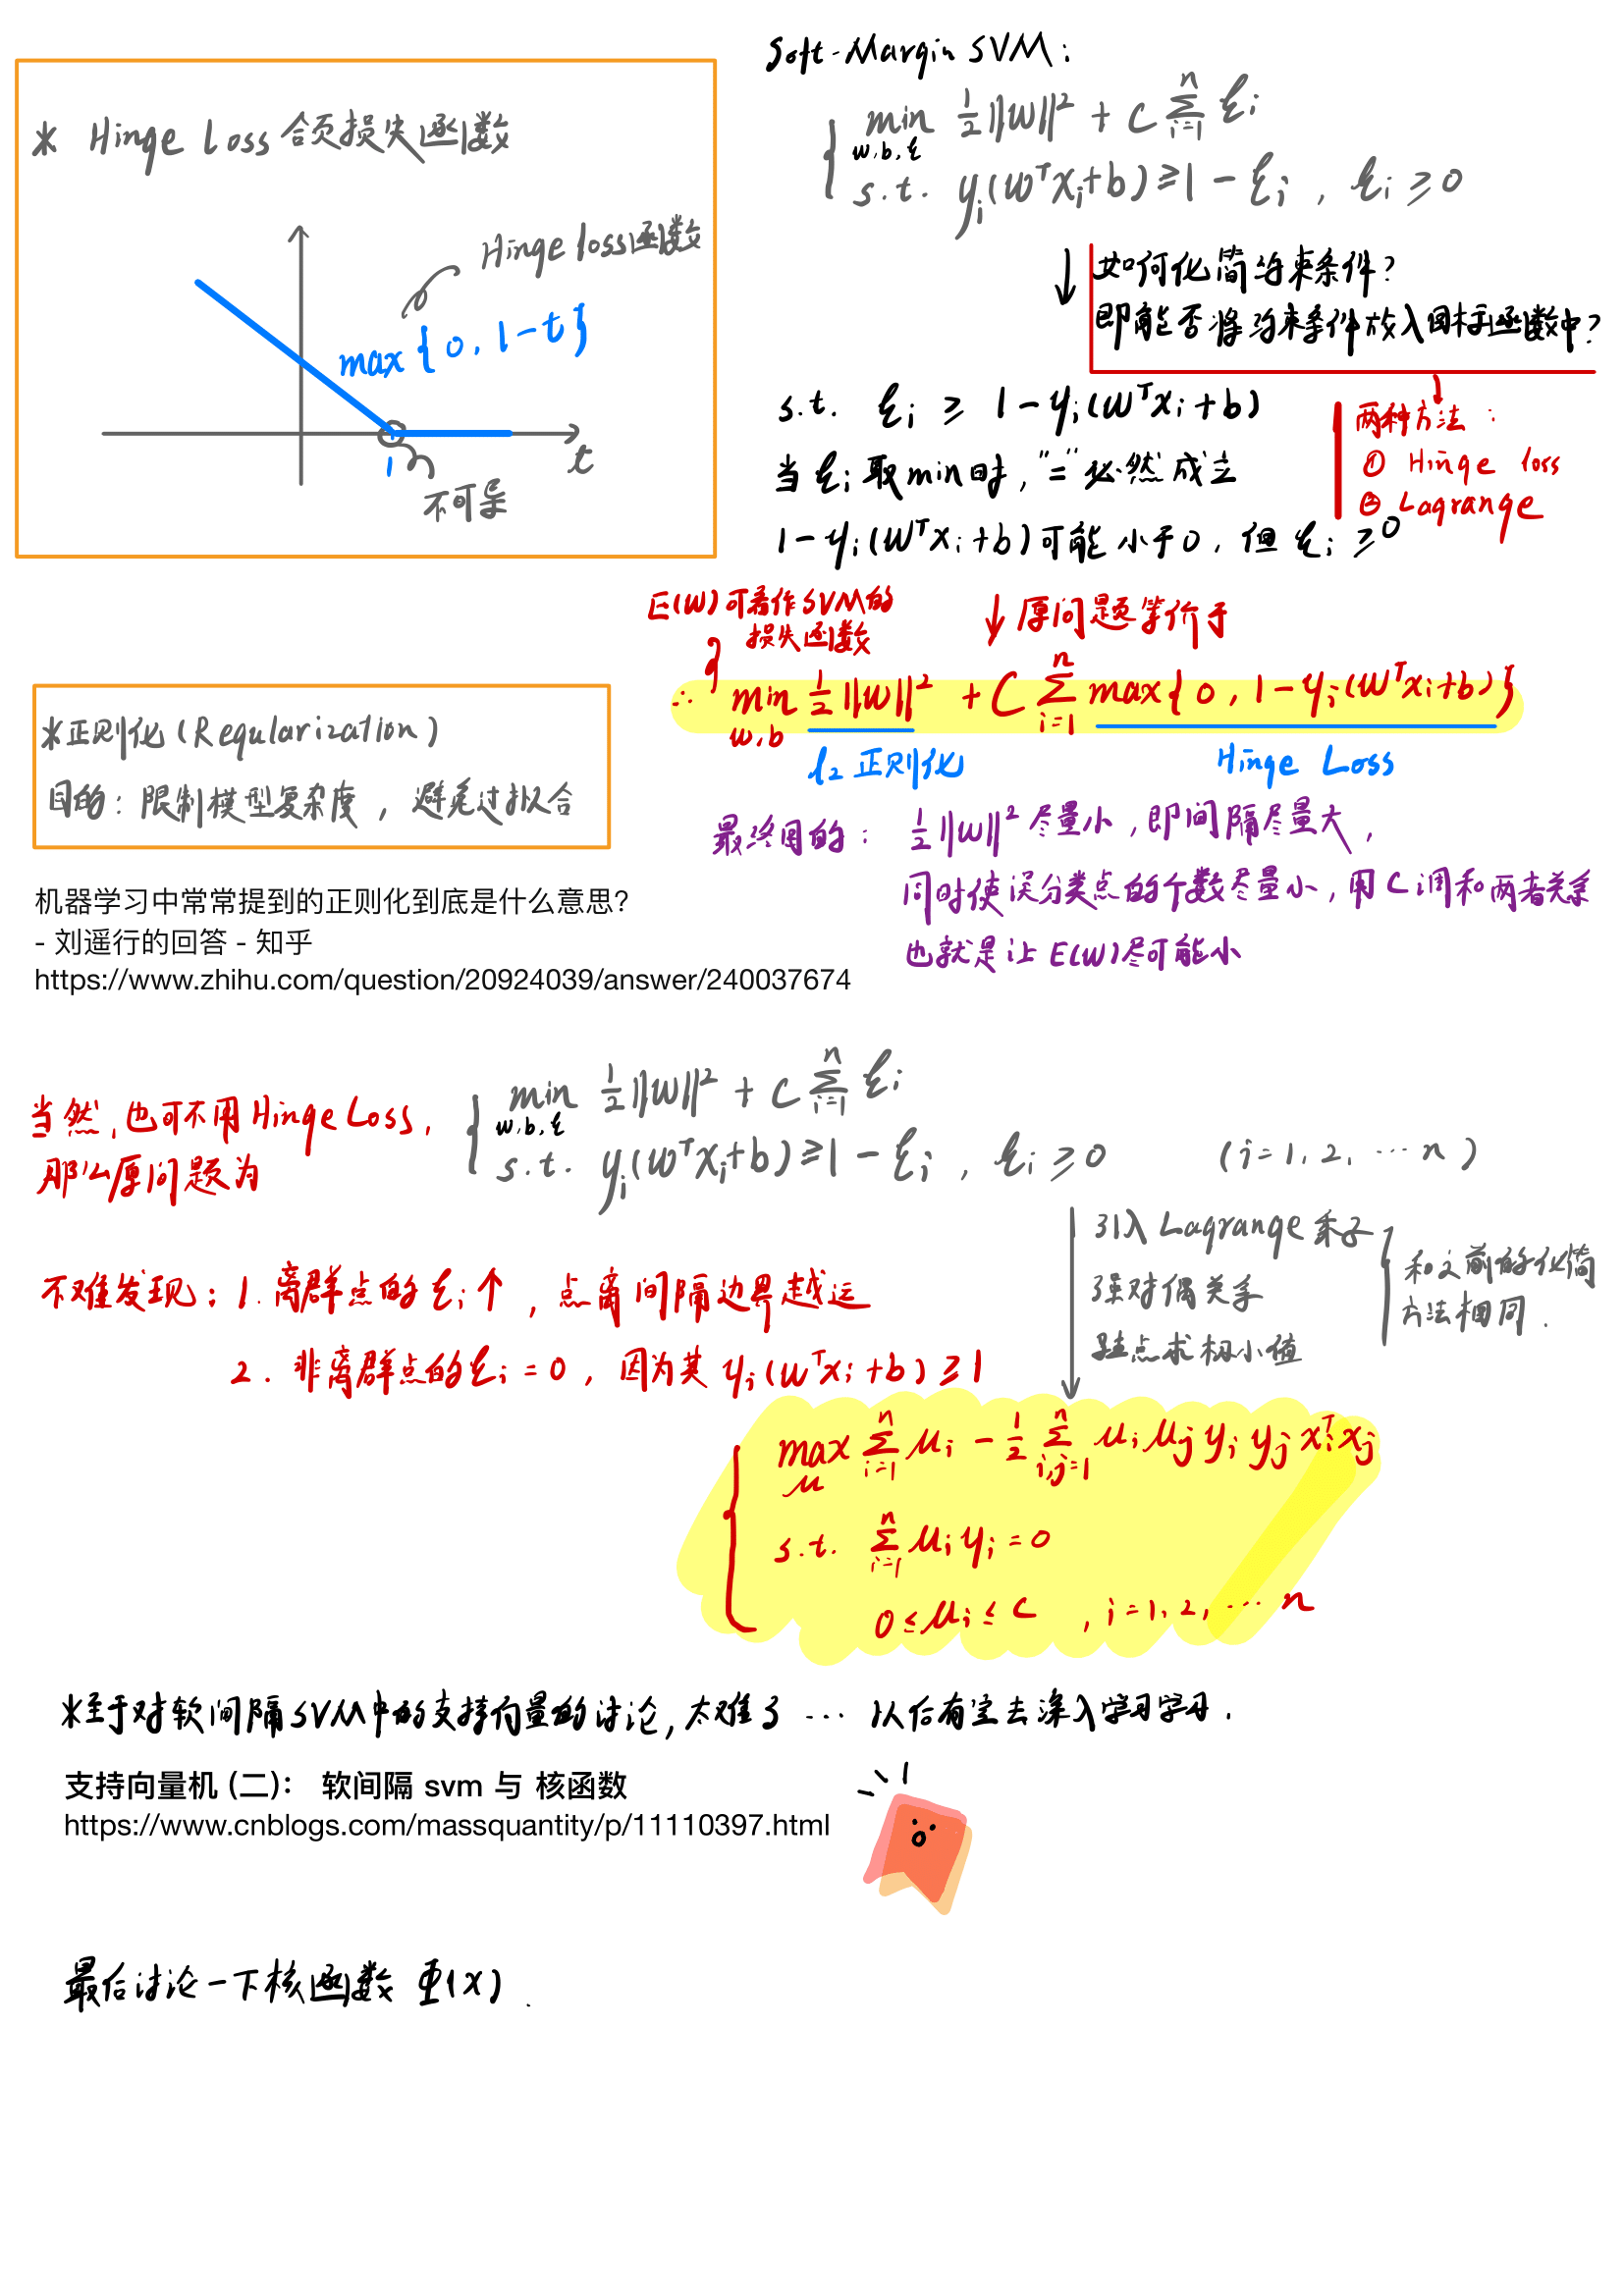 * Hinge Loss 合页损失函数
Hinge loss函数
max{0, 1-t}
1
t
不可导
Soft-Margin SVM:
min ½||w||² + C Σ ξi
w,b,ξ i=1 n
s.t. yi(wᵀxi+b) ≥ 1 - ξi , ξi ≥ 0
↓ 如何化简约束条件?
即能否将约束条件放入目标函数中?
两种方法:
① Hinge loss
② Lagrange
s.t. ξi ≥ 1 - yi(wᵀxi+b)
当ξi取min时, "=" 必然成立
1 - yi(wᵀxi+b)可能小于0, 但ξi ≥ 0
E(W)可看作SVM的
损失函数
↓ 原问题等价于
∴ min ½||w||² + C Σ max{0, 1-yi(wᵀxi+b)}
w,b i=1 n
l₂ 正则化
Hinge Loss
最终目的: ½||w||² 尽量小, 即间隔尽量大,
同时使误分类点的个数尽量小, 用C调和两者关系
也就是让E(W)尽可能小
*正则化 (Regularization)
目的: 限制模型复杂度, 避免过拟合
机器学习中常常提到的正则化到底是什么意思?
- 刘遥行的回答 - 知乎
https://www.zhihu.com/question/20924039/answer/240037674
当然, 也可不用Hinge Loss,
那么原问题为
min ½||w||² + C Σ ξi
w,b,ξ i=1 n
s.t. yi(wᵀxi+b) ≥ 1 - ξi , ξi ≥ 0 (i=1, 2, ... n)
引入Lagrange乘子
强对偶关系
驻点求极小值
和之前的化简
方法相同.
不难发现: 1. 离群点的ξi↑, 点离间隔边界越远
2. 非离群点的ξi=0, 因为其yi(wᵀxi+b) ≥ 1
max Σ μi - ½ Σ μi μj yi yj xiᵀxj
μ i=1 n i,j=1 n
s.t. Σ μi yi = 0
i=1 n
0 ≤ μi ≤ C , i=1, 2, ... n
*至于对软间隔SVM中的支持向量的讨论, 太难了 ... 以后有空去深入学习学习.
支持向量机 (二): 软间隔 svm 与 核函数
https://www.cnblogs.com/massquantity/p/11110397.html
最后讨论一下核函数 Φ(x).